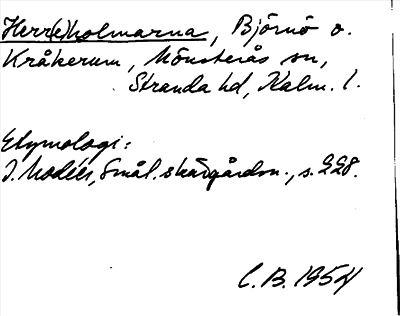 Herr(e)holmarna, Björnö o.
Kråkerum, Mönsterås sn,
Stranda hd, Kalm. l.
Etymologi:
I. Modéer, Smål. skärgårdsn., s. 228.
C. B. 1954